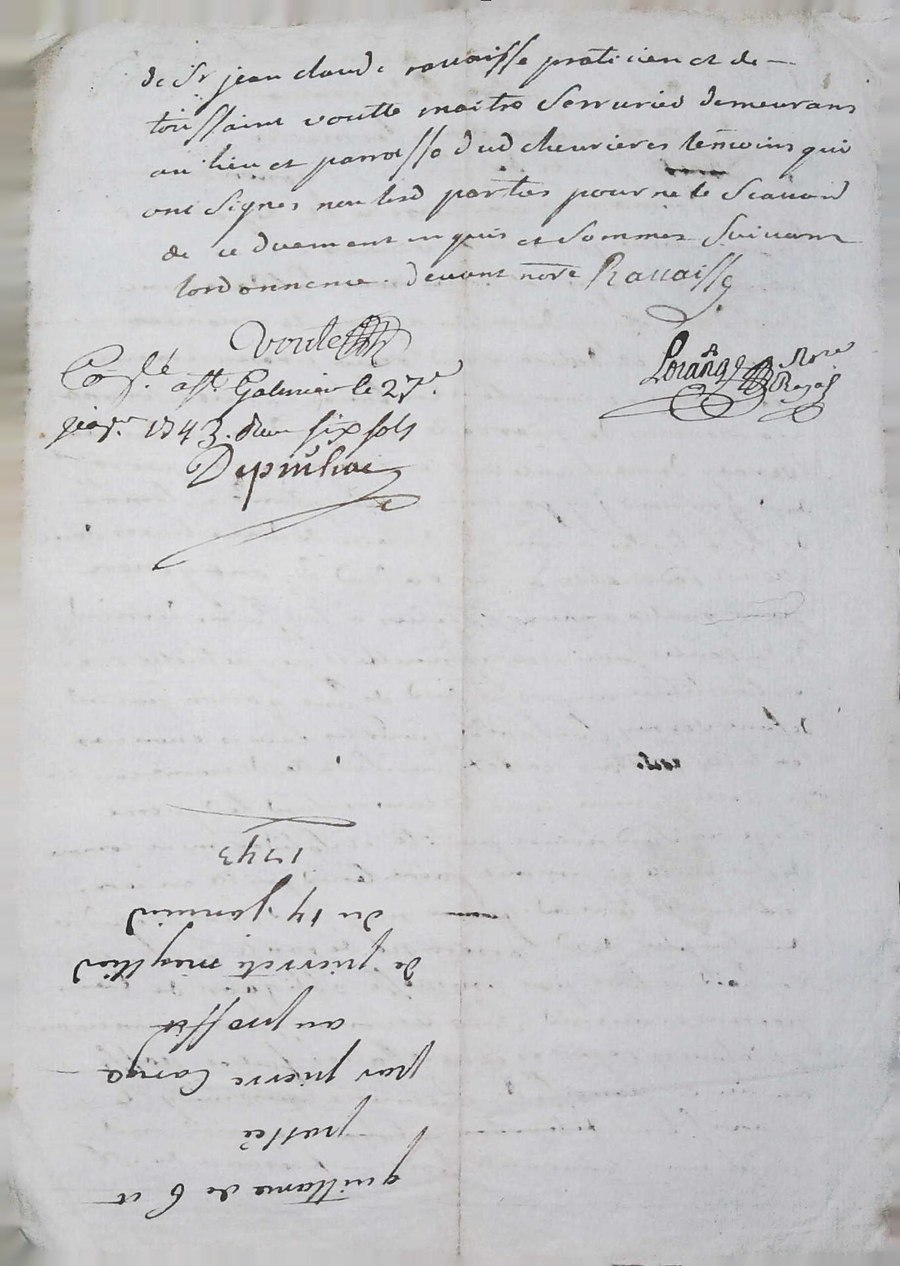 de Sr jean claude ravaisse praticien et de
toussaint voulte maitre Serrurier demeurans
au lieu et parroisse dud chevrieres temoins qui
ont Signes non lesd parties pour ne le Scavoir
de ce duement enquis et Sommes Suivant
lordonnence. devant nore Ravaisse
Voulte
Lorange Nore Royal
Conlé a St Galmier le 27e
janvr 1743. Reçu six sols
quittance de 6 #
passée
par pierre
au proffit
de pierrette
du 14 janvier
1743